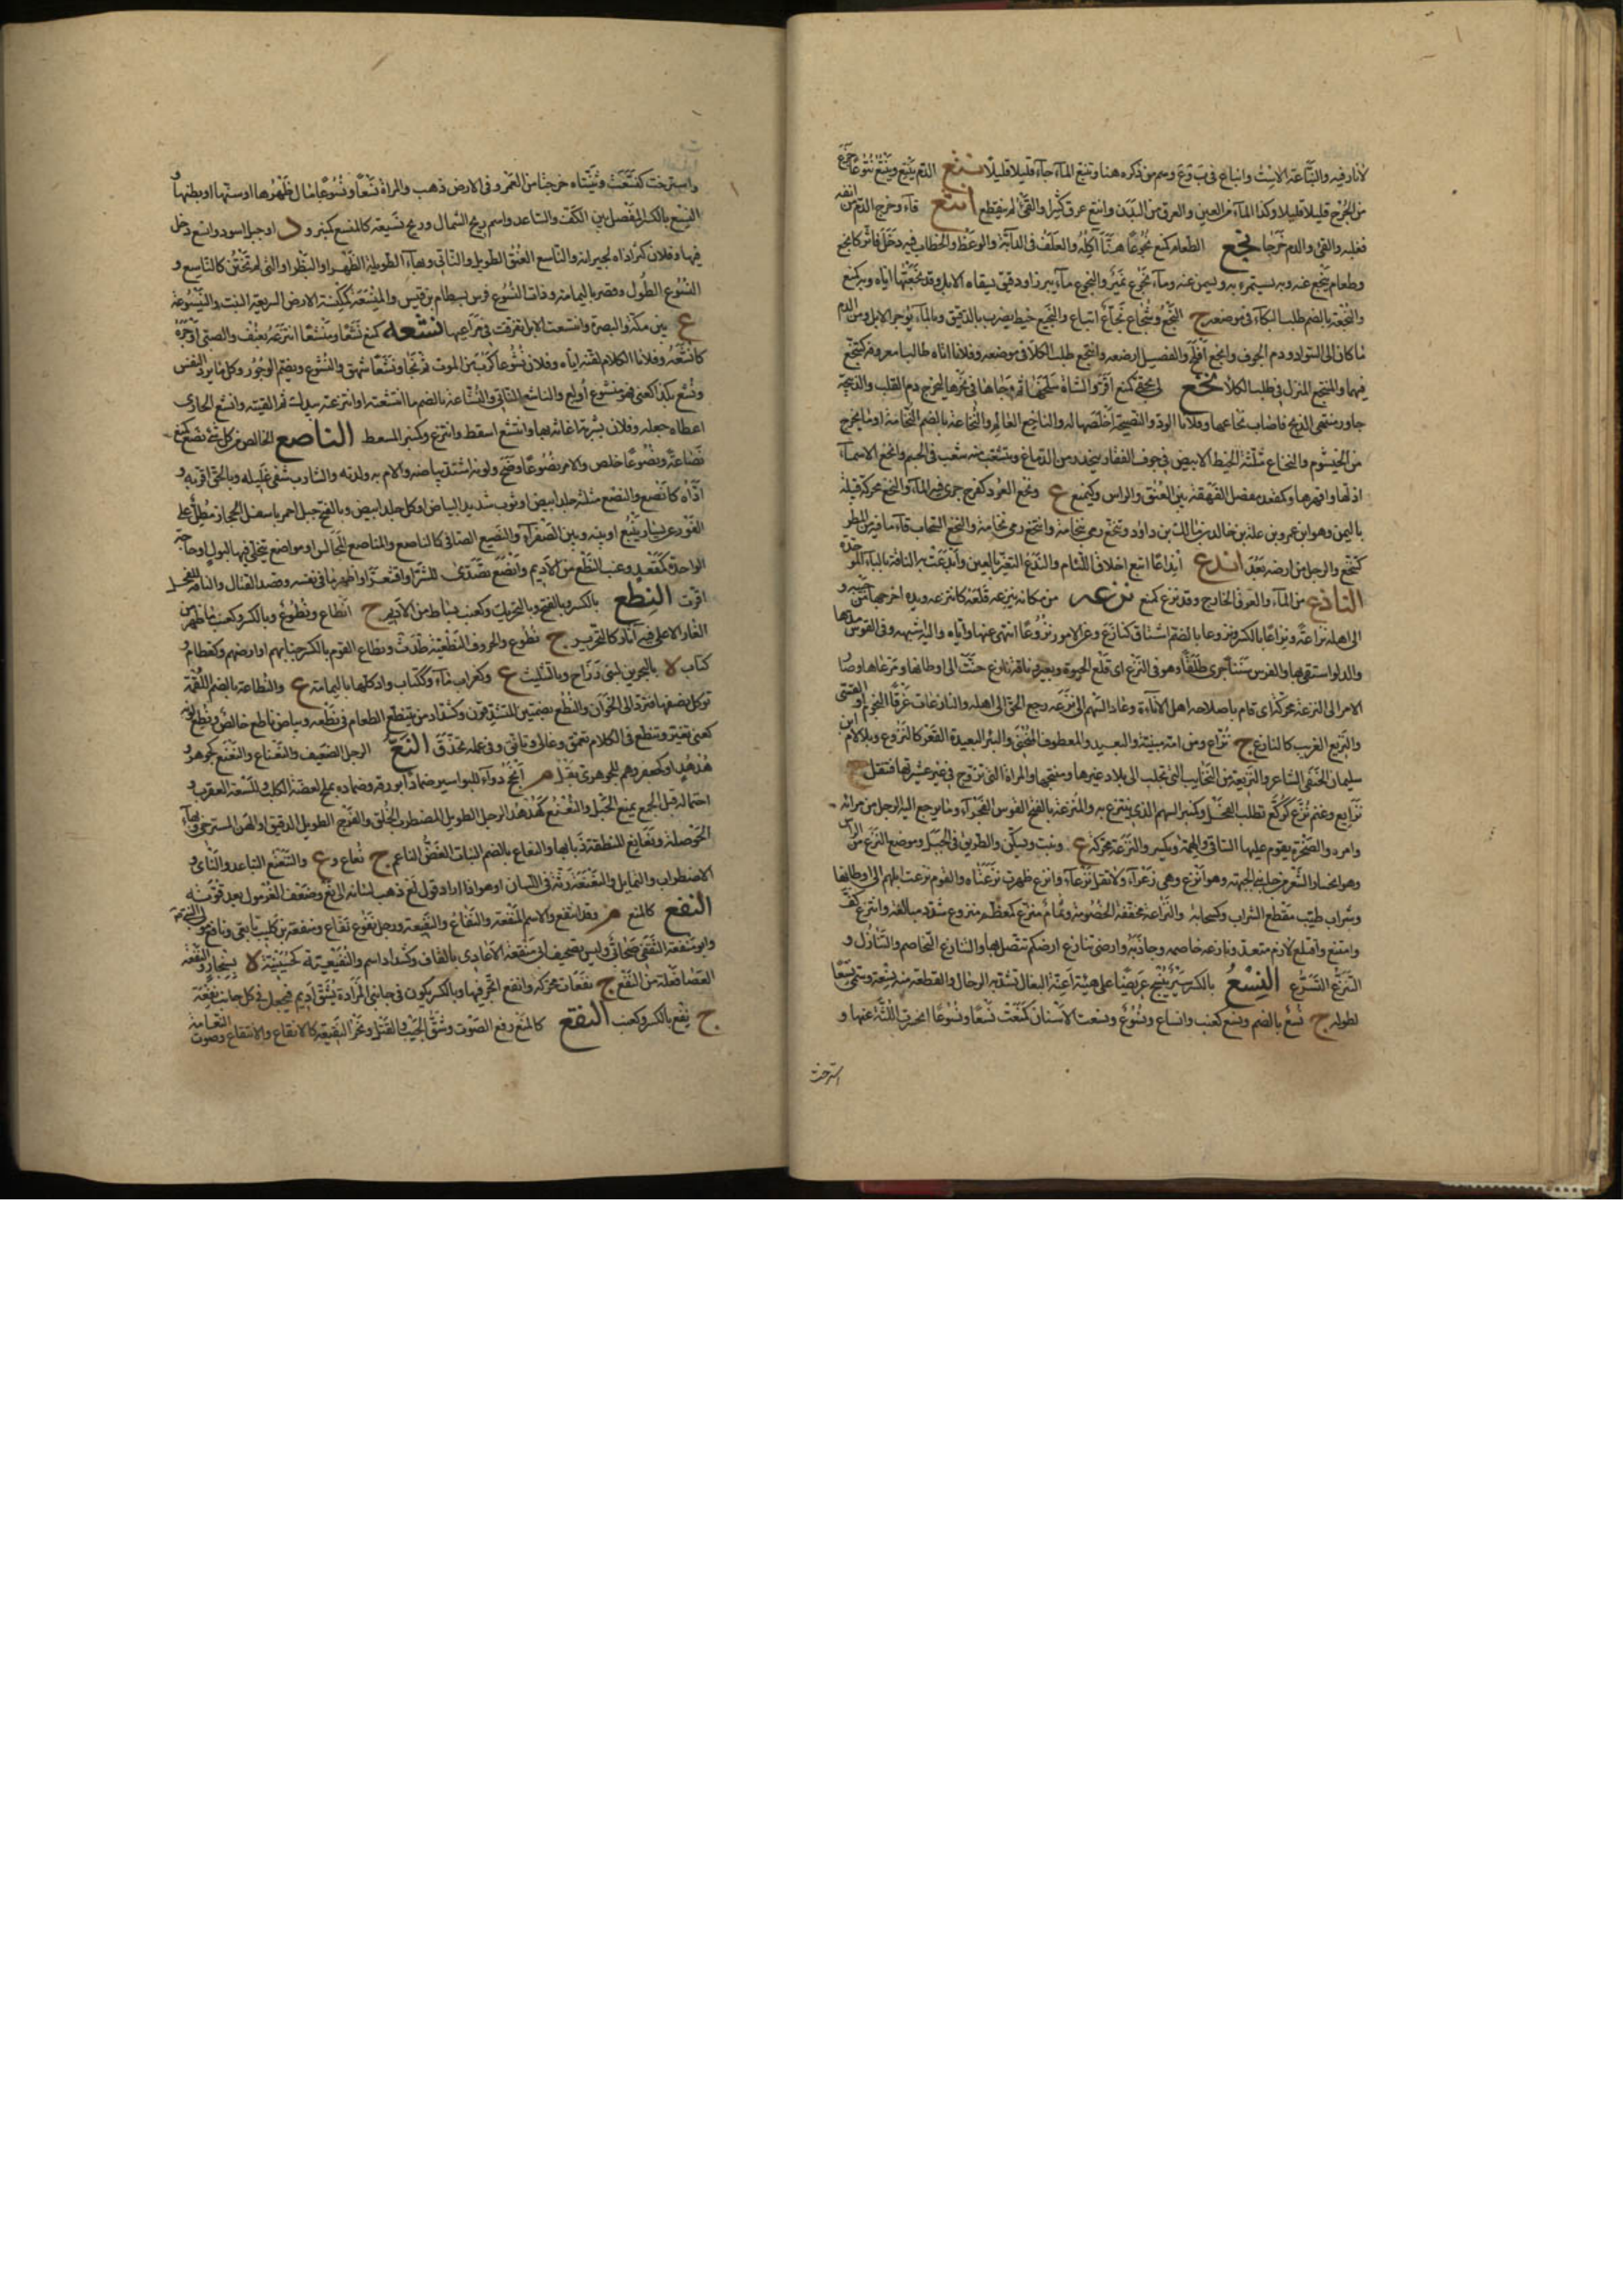 لانار فيه والنباعة الاست واتباع في ب و ع وهم من ذكره هنا ونبع الماء جاء قليلا قليلا نتع الدم ينتع وينتع نتوعا خرج
من الجرح قليلا قليلا وكذا الماء من العين والعرق من البدن وانتع عرق كثيرا والقيء لم ينقطع انثع قاء وخرج الدم من انفه
فغلبه والقيء والدم خرجا نجع الطعام كمنع نجوعا هنأ آكله والعلف في الدابة والوعظ والخطاب فيه دخل فاثر كانجع
وطعام ينجع عنه وبه يستمرء به ويسمن عنه وماء نجوع نمير والنجوع ماء ببزر او دقيق تسقاه الابل وقد نجعتها اياه وبه كمنع
والنجعة بالضم طلب الكلاء في موضعه ج النجع وشجاع نجاع اتباع والنجيع خبط يضرب بالدقيق وبالماء يوجر الابل ومن الدم
ما كان الى السواد او دم الجوف وانجع افلح والفصيل ارضعه وانتجع طلب الكلا في موضعه وفلانا اتاه طالبا معروفه كتنجع
فيهما والمنتجع المنزل في طلب الكلا نخع لي بحقي كمنع اقر والشاة سلخها ثم وجاها في نحرها ليخرج دم القلب والذبيحة
جاوز منتهى الذبح فاصاب نخاعها وفلانا الود والنصيحة اخلصهما له والناخع العالم والنخاعة بالضم النخامة او ما يخرج
من الخيشوم والنخاع مثلثة الخيط الابيض في جوف الفقار ينحدر من الدماغ ويتشعب منه شعب في الجسم وانخع الاسماء
اذلها واقهرها وكمقعد مفصل الفهقة بين العنق والراس وكينبع ع ونخع العود كفرح جرى فيه الماء والنخع محركة قبيلة
باليمن وهو ابن عمرو بن علة بن خالد بن مالك بن داود وتنخع رمى بنخامته وانتخع رمى نخامة والنخع السحاب قاء ما فيه من المطر
كتنخع والرجل من ارضه بعد اندع انداعا اتبع اخلاق اللئام والندع النغز بالعين
الناذع من الماء والعرق الخارج وقد نزع كمنع نزعه من مكانه ينزعه قلعه كانتزعه ويده اخرجها من جيبه و
الى اهله نزاعة ونزاعا بالكسر ونزوعا بالضم اشتاق كنازع وعن الامور نزوعا انتهى عنها واباه واليه اشبهه وفي القوس مدها
والدلو استقى بها والفرس سننا جرى طلقا وهو في النزع اى قلع الحيوة وبعير وناقة نازع حنت الى اوطانها ومرعاها وصار
الامر الى النزعة محركة اى قام باصلاحه اهل الاناءة وعاد السهم الى النزعة رجع الحق الى اهله والنازعات غرقا النجوم او القسي
والنزيع الغريب كالنازع ج نزاع ومن امه سبية والبعيد والمقطوف المجنى والبئر البعيدة القعر كالنزوع وبلا لام ابن
سليمان الحنفي الشاعر والنزيعة من النجائب التي تجلب الى بلاد غيرها ومنتجها والمرأة التي تزوج في غير عشيرتها فتنقل ج
نزايع وغنم نزع كركع تطلب الفحل وكمنبر السهم الذي ينتزع به والمنزعة بالفتح القوس الفجواء وما يرجع اليه الرجل من رايه
وامره والصخرة يقوم عليها الساقي والهمة وتكسر والنزعة محركة ع ونبت ويسكن والطريق في الجبل وموضع النزع من الراس
وهو انحسار الشعر من جانبي الجبهة وهو انزع وهي زعراء ولا تقل نزعاء وانزع ظهرت نزعتاه والقوم نزعت ابلهم الى اوطانها
وشراب طيب المنزعة طيب مقطع الشراب وكسحابة والنزاعة مخففة الخصومة وثمام منزع كمعظم منزوع شدد مبالغة وانتزع كف
وامتنع واقتلع لازم متعد ونازعه خاصمه وجاذبه وارضي تنازع ارضكم تتصل بها والتنازع التخاصم والتناول و
التنزع التسرع النسع بالكسر سير ينسج عريضا على هيئة اعنة البغال تشد به الرحال والقطعة منه نسعة وسمي نسعا
لطوله ج نسع بالضم ونسع كعنب وانساع ونسوع ونسعت الاسنان كمنعت نسعا ونسوعا انحسرت اللثة عنها و
استرخت
واسترخت كنسعت وثنيتاه خرجتا من العمر وفي الارض ذهب والمرأة نسعا ونسوعا طال ظهرها او سنها او بطنها و
النسع بالكسر المفصل بين الكف والساعد واسم ريح الشمال وريح نسعية كالمنسع كمنبر و د او جبل اسود وانسع دخل
فيها وفلان كثر اذاه لجيرانه والناسع العنق الطويل والناتي وبهاء الطويلة الظهر او البظر او التي لم تختن كالناسع و
النسوع الطول وقصر باليمامة وذات النسوع فرس بسطام بن قيس والمنسعة كمكنسة الارض السريعة النبت والينسوعة
ع بين مكة والبصرة وانتسعت الابل تفرقت في مراعيها نشعه كمنعه نشعا ومنشعا انتزعه بعنف والصبي اوجره
كانشعه وفلانا الكلام لقنه اياه وفلان نشوعا كرب من الموت ثم نجا ونشعا شهق والنشوع ويضم الوجور وكل ما يرد النفس
ونشع بكذا كعني فهو منشوع أولع والناشع الناتي والنشاعة بالضم ما انتشعته او انتزعته بيدك ثم القيته وانشع الحازي
اعطاه جعله وفلان بشربة اغاثه بها وانتشع استعط وانتزع وكمنبر المسعط الناصع الخالص من كل شيء نصع كمنع
نصاعة ونصوعا خلص والامر نصوعا وضح ولونه اشتد بياضه والام به ولدته والشارب شفى غليله وبالحق اقر به و
اداه كانصع والنصع مثلثة جلد ابيض او ثوب شديد البياض او كل جلد ابيض وبالفتح جبل احمر باسفل الحجاز مطل على
الغور عن يسار ينبع او بينه وبين الصفراء والنصيع الصافي كالناصع والمناصع المجالس او مواضع يتخلى فيها لبول او حاجة
الواحد كمقعد وعنب النطع من الاديم وانصع تصدى للشر او اقشعر او اظهر ما في نفسه وقصد القتال والناقة للفحل
اقرت النطع بالكسر وبالفتح وبالتحريك وكعنب بساط من الاديم ج انطاع ونطوع وبالكسر وكعنب ما ظهر من
الغار الاعلى فيه آثار كالتحزيز ج نطوع والحروف النطعية طدت ونطاع القوم بالكسر جنابهم او ارضهم وكقطام و
كتاب لا بالبحرين لبني رزاح وبالتثليث ع وكغراب ماء وككتاب واد كلها باليمامة ع والنطاعة بالضم اللقمة
توكل نصفها فترد الى الخوان والنطع بضمتين المتشدقون وكشداد من يتنطع الطعام في نطعه وبياض ناطع خالص ونطع لونه
كعني تغير وتنطع في الكلام تعمق وغالى وتانق وفي عمله تحذق النع الرجل الضعيف والنعناع والنعنع كجعفر و
هدهد او كجعفر وهم للجوهري بقل م انجع دواء للبواسير ضمادا بورقه وضماده بملح لعضة الكلب ولسعة العقرب و
احتماله قبل الجماع يمنع الحبل والنعنع كهدهد الرجل الطويل المضطرب الخلق والفرج الطويل الدقيق او الهن المسترخي وبهاء
الحوصلة ونعانع المنطقة ذباذبها والنعاع بالضم النبات الغض الناعم ج نعاع و ع والتنعنع التباعد والنأي و
الاضطراب والتمايل والنعنعة رتة في اللسان او هو اذا اراد قول لع ذهب لسانه الى نع وضعف الغرمول بعد قوته
النفع كالمنع م وقد انتفع والاسم المنفعة والنفاع والنفيعة ورجل نفوع نفاع ومنفعة بن كليب تابعي ونافع مولى للنبي
وابو منفعة الثقفي صحابي وليس بتصحيف ابي منقعة الانماري بالقاف وكشداد اسم والنفيعية كحسينية لا بسنجار والنفعة
العصا فعلة من النفع ج نفعات محركة وانفع اتجر فيها وبالكسر يكون في جانبي المزادة يشق اديم فيجعل في كل جانب نفعة
ج نفع بالكسر وكعنب النقع كالمنع رفع الصوت وشق الجيب والقتل ونحر النقيعة كالانقاع والانتقاع وصوت النعامة